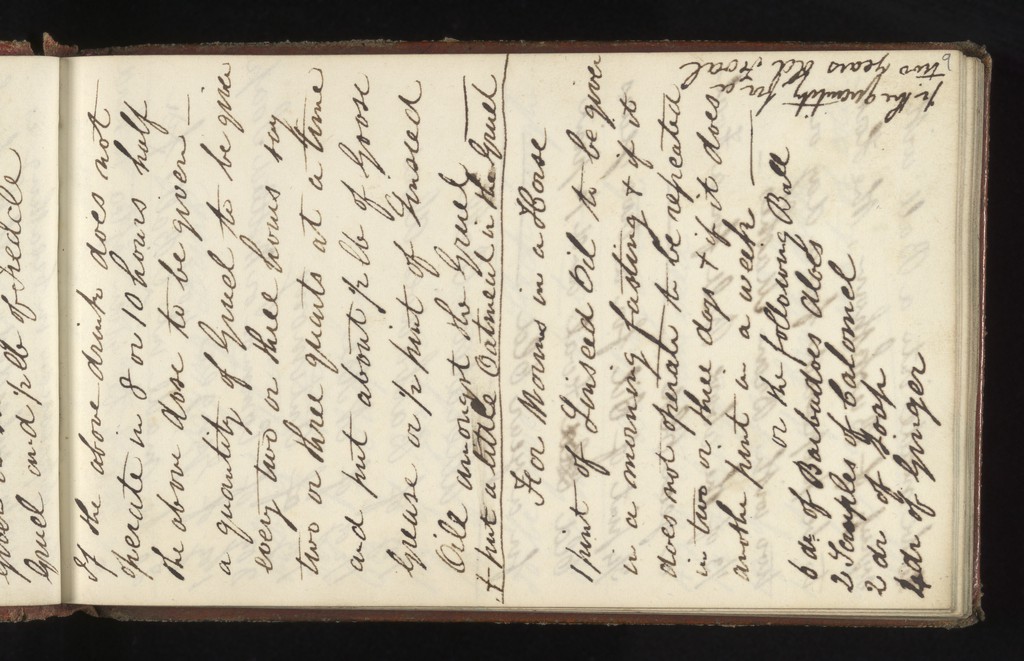 Gruel and p lb of treacle
If the above drink does not
operate in 8 or 10 hours half
the above dose to be given —
a quantity of Gruel to be give
every two or three hours say
two or three quarts at a time
and put about p lb of Goose
Grease or p pint of Linseed
Oile amongst the Gruel
+ put a little Oatmeal in the Gruel
For Worms in a Horse
1 pint of Linseed Oil to be given
in a morning fasting + if it
does not operate to be repeated
in two or three days + if it does
another pint in a week —
or the following Ball
6 dr of Barbadoes Aloes
2 Scruples of Calomel
2 dr of Soap
4 dr of Ginger
p the quantity for a
two years old Foal
9